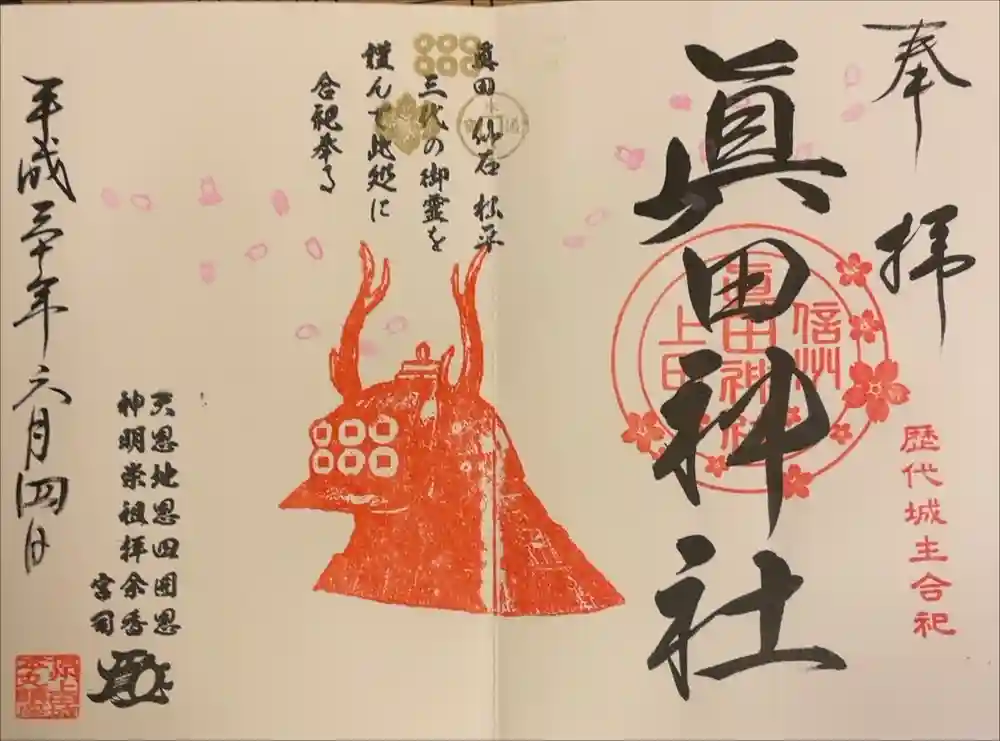 奉拝
眞田神社
信州
眞田神社
上田
歴代城主合祀
眞田 仙石 松平
三代の御霊を
謹んで此処に
合祀奉る
天恩地恩四囲恩
神明崇祖拝余香
宮司
平成三十年六月四日